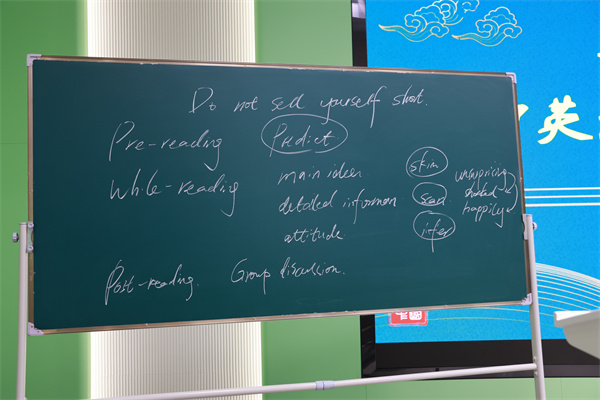 Do not sell yourself short.
Pre-reading Predict
While-reading main idea skim
detailed
attitude infer
happily
Post-reading. Group discussion.
英